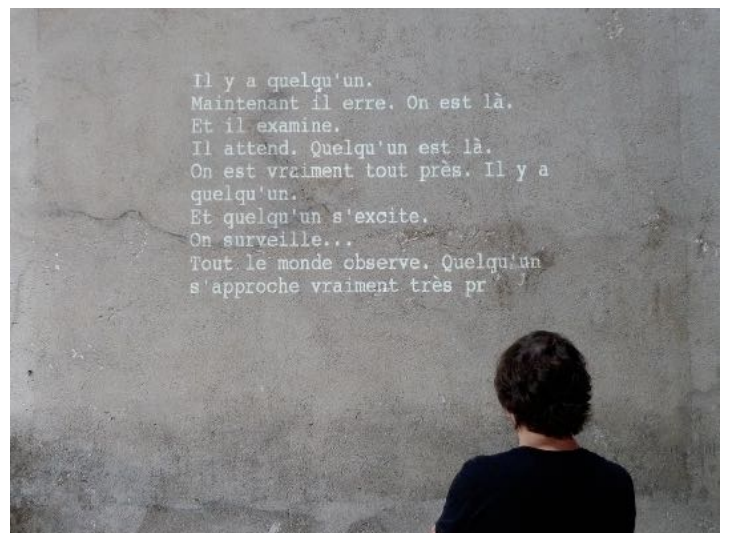 Il y a quelqu'un.
Maintenant il erre. On est là.
Et il examine.
Il attend. Quelqu'un est là.
On est vraiment tout près. Il y a
quelqu'un.
Et quelqu'un s'excite.
On surveille...
Tout le monde observe. Quelqu'un
s'approche vraiment très pr